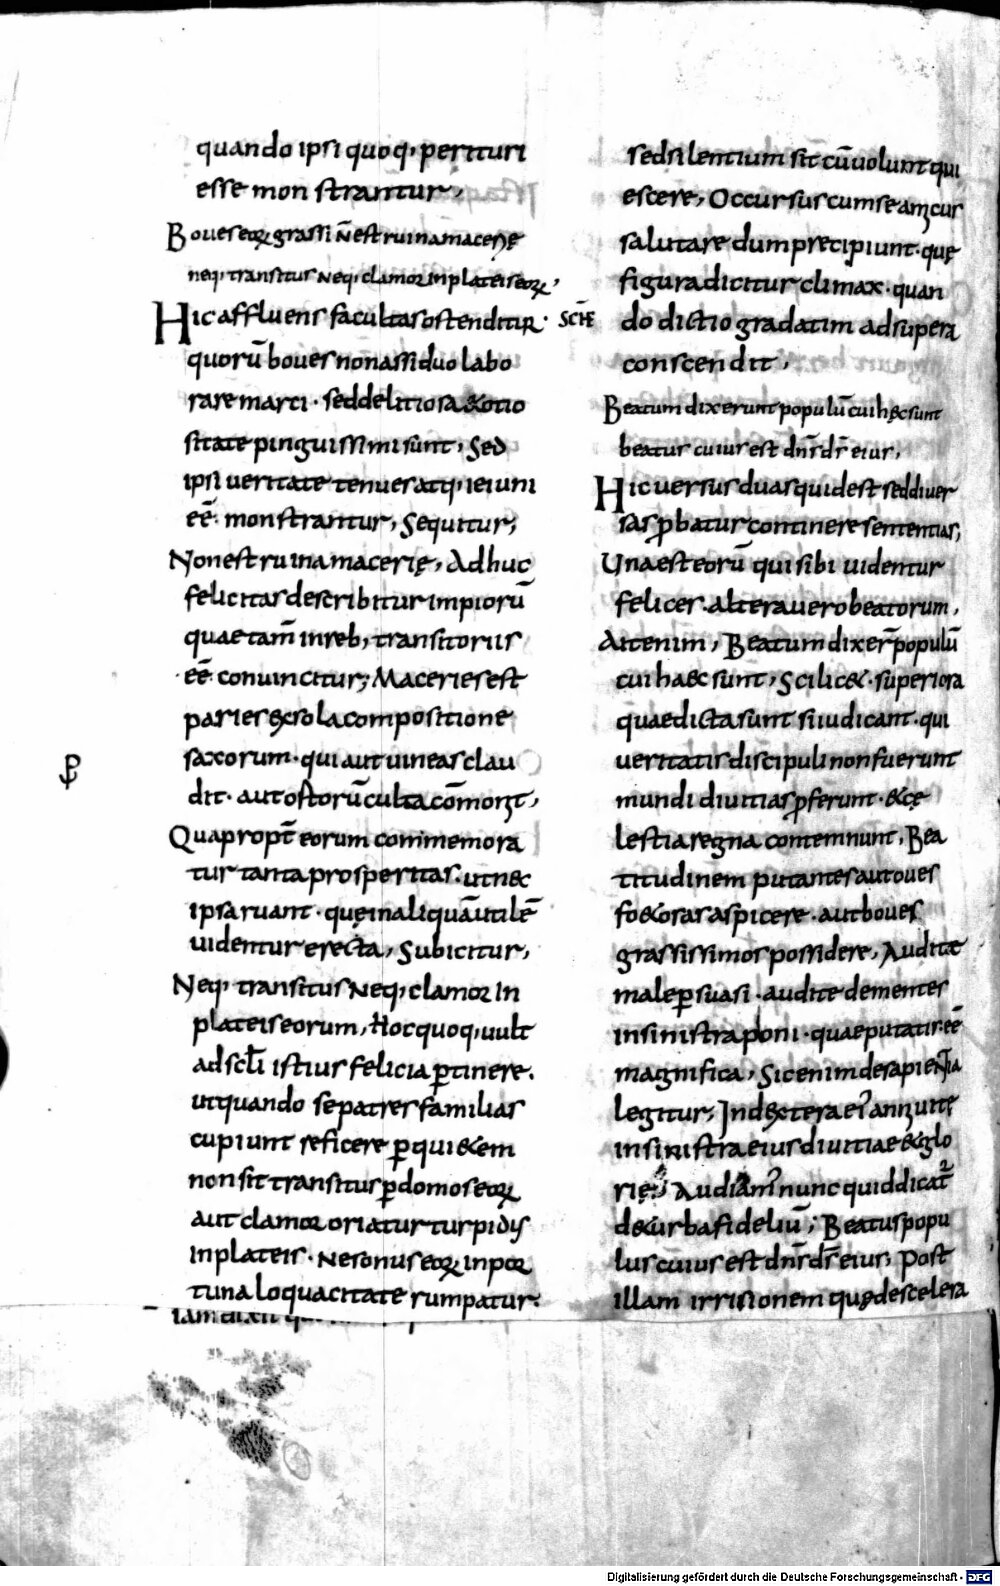 quando ipsi quoq; perituri
esse monstrantur,
Boues eoꝝ grassi n̄ est ruina macerię
neq; transitus neq; clamor in plateis eoꝝ,
Hic affluens facultas ostenditur · SCĒ
quorū boues non assiduo labo
rare marci · sed delitiosa & otio
sitate pinguissimi sunt, Sed
ipsi ueritate tenues atq; ieiuni
eē· monstrantur, Sequitur,
Non est ruina macerię, Adhuc
felicitas describitur impiorū
quae tam̄ in reb; transitoriis
eē· conuincitur; Maceries est
paries ex sola compositione
saxorum · qui aut uineas clau
dit · aut ostorū culta cōmonit,
Quapropt̄ eorum commemora
tur tanta prosperitas · ut nec
ipsa ruant · quę in aliqua utilē
uidentur erecta, Subicitur,
Neq; transitus neq; clamor in
plateis eorum, Hoc quoq; uult
ad scłi istius felicia ꝑtinere.
ut quando se patres familias
cupiunt reficere ꝑ qui&em
non sit transitus ꝑ domos eoꝝ
aut clamor oriatur turpidus
in plateis · ne sonus eoꝝ inpor
tuna loquacitate rumpatur·
iam dixit
sed silentium sit cū uolunt qui
escere, Occursus cum se ancus
salutare dum precipiunt · quę
figura dicitur climax · quan
do dictio gradatim ad supera
conscendit,
Beatum dixerunt populū cui hęc sunt
beatus cuius est dn̄s ds̄ eius,
Hic uersus duas quidē st sed diuer
sas ꝓbatur continere sententias,
Una est eorū qui sibi uidentur
felices · altera uero beatorum,
Ait enim, Beatum dixer̄ populū
cui haec sunt, Scilic& · superiora
quae dicta sunt si iudicant · qui
ueritatis discipuli non fuerunt
mundi diuitias p̄ferunt · & cę
lestia regna contemnunt, Bea
titudinem putantes aut oues
fo&osas aspicere · aut boues
grassissimos possidere, Audite
male ꝑsuasi · audite dementes
in sinistra poni · quae putatis eē
magnifica, Sic enim de sapientia
legitur, In dextera ei' anni uitę
in sinistra eius diuitiae & glo
rię; Audiam' nunc quid dicat
de&ur ba fideliū; Beatus popu
lus cuius est dn̄s ds̄ eius, Post
illam irrisionem quę de scelera
₽
Digitalisierung gefördert durch die Deutsche Forschungsgemeinschaft - DFG